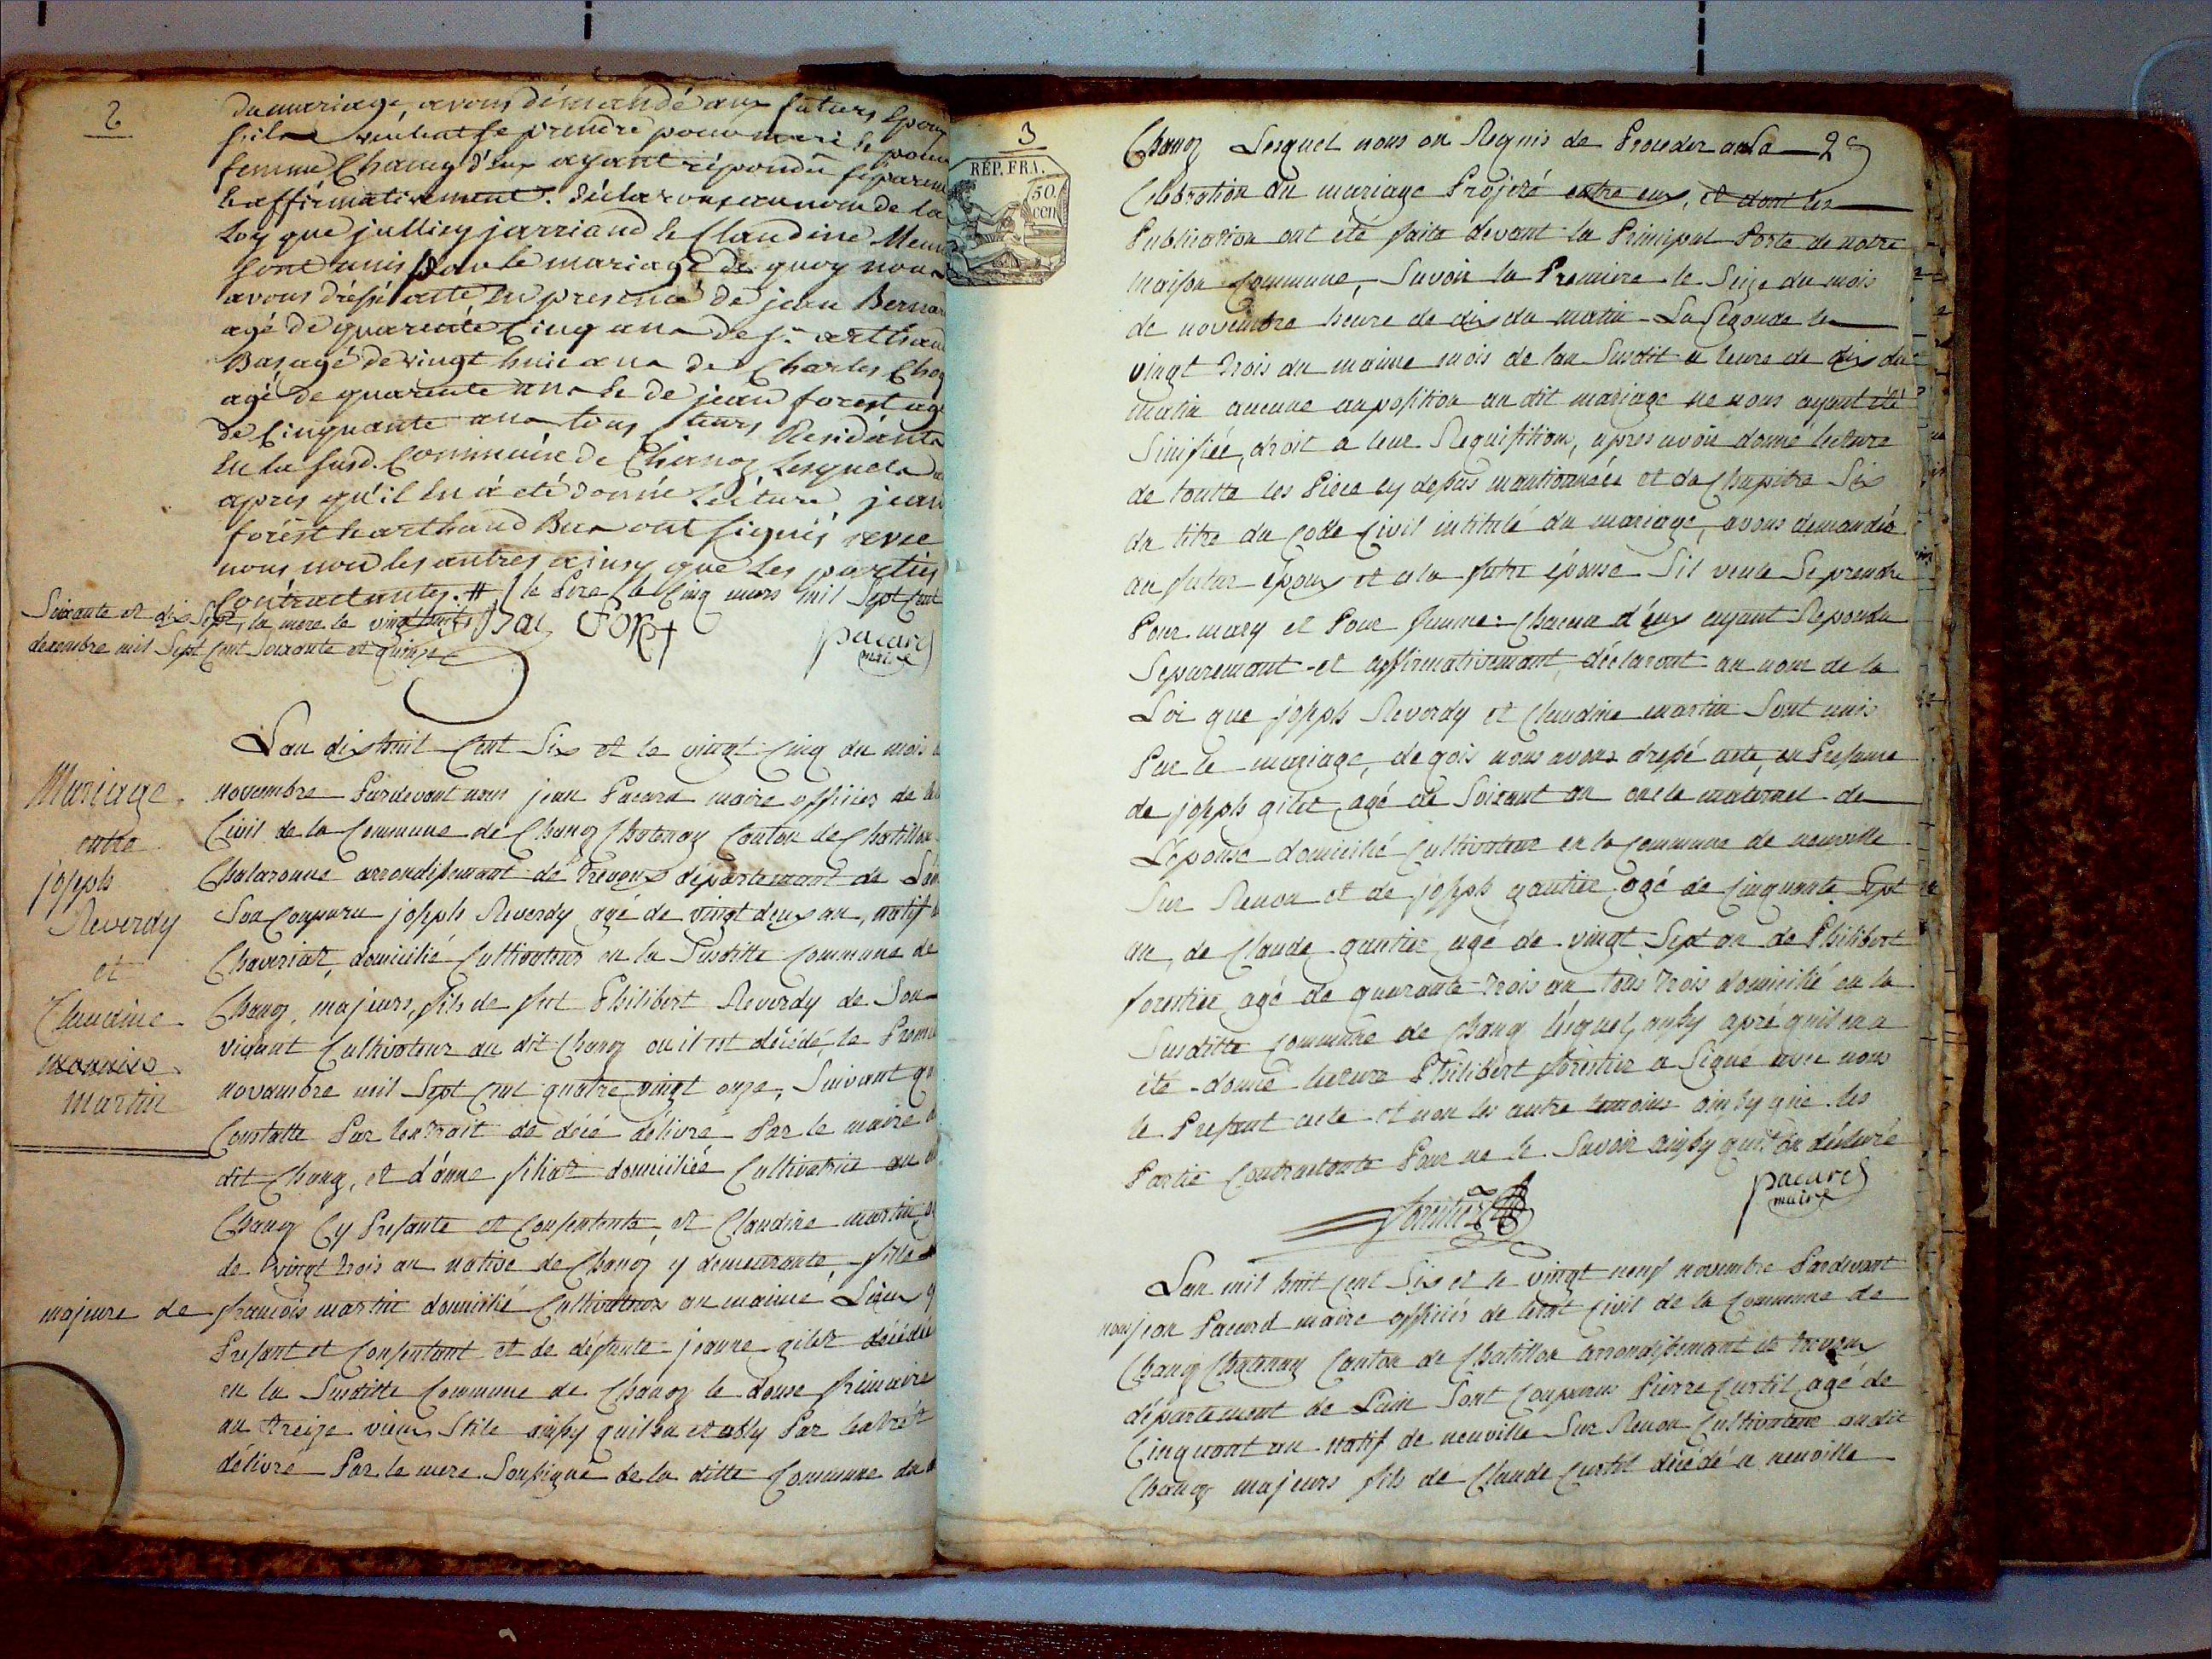 2
du mariage, avons démendé aux futurs Epoux
s'ils veulent se prendre pour mari & pour
femme Chacun d'eux ayant répondu séparem
& affirmativement. déclarons au nom de la
Loy que jullien jarriand & Claudine
sont unis par le mariage de quoy nous
avons dréssé acte en presence de jean Bernar
agé de quarente Cinq ans de
Bas agé de vingt huit ans de Charles
agé de quarente ans & de jean forest agé
de Cinquante ans tous Residents
en la susd. Commune de Chanoz Lesquels
apres qu'il en a eté donné Lécture, jean
forest & arthaud Bas ont signés avec
nous non les autres ainsy que Les parties
Contractantes. # le Pere le Cinq mars mil Sept Cent
Soixante et dix Sept, la mere le vingt huit
decembre mil Sept Cent Soixante et quinze
Bas Foret
pacard
maire
Mariage
entre
joseph
Reverdy
et
Claudine
martin
Lan dix huit Cent Six et le vingt Cinq du mois d
novembre Pardevant nous jean Pacard maire officier de
Civil de la Commune de Chanoz Chatenay Canton de Chatillon
Chalaronne arrondissemant de trevoux départemant de Lain
Son Comparu joseph Reverdy agé de vingt deux an, natif d
Chaveriat, domicilié Cultivateur en la Susditte Commune de
Chanoz, majeurs, fils de feu Philibert Reverdy de Son
vivant Cultivateur au dit Chanoz ou il est décédé, le Premie
novambre mil Sept Cent quatre vingt onze, Suivant qu
Constatte Par lextrait de décé délivré Par le maire d
dit Chanoz, et d'anne filiat domiciliée Cultivatrice au
Chanoz Cy Presante et Consentente, et Claudine martin
de vingt trois an native de Chanoz y demeurante, fille
majeure de francois martin domicilié Cultivateur au maime Lieux
Presant et Consentant et de défunte jeanne gilet décédée
en la Susditte Commune de Chanoz le douse frimaire
an treize vieux Stile ainsy quil en et ably Par lextrét
délivré Par le mere Soussigné de la ditte Commune du
3
RÉP. FRA.
50
cen
Chanoz Lesquel nous on Requis de Proceder a La 2e
Celebration du mariage Projeté entre eux, et dont les
Publication ont été faite devant la Principal Porte de notre
maison Commune, Savoir la Premiere le Seize du mois
de novembre heure de dix du matin La Segonde le
vingt trois du maime mois de lan Susdit a heure de dix du
matin aucune auposition au dit mariage ne nous ayant été
Sinifiée, droit a leur Requisition, apres avoir donné lecture
de toutte les Piece cy desus mantionnées et du Chapitre Six
du titre du Code Civil intitulé du mariage, avons demandés
au futur époux et a la futre épouse Sil veule Se prendre
Pour mary et Pour femme: Chacun d'eux ayant Repondu
Separemant et affirmativemant, déclaront au nom de la
Loi que joseph Reverdy et Claudine martin Sont unis
Par le mariage, de qois nous avons dressé acte, en Presance
de joseph gilet agé de Soixant an oncle maternel de
L'épouse domicilié Cultivateur en la Commune de neuville
Sur Renon et de joseph gautier agé de Cinquante Sept
an, de Claude gautier agé de vingt Sept an de Philibert
forestier agé de quarante trois an tous trois domicilié en la
Susditte Commune de Chanoz lésquel, apré quil en a
été donné lecture Philibert forestier a Signé avec nous
le Presant acte et non les autre temoins ainsy que les
Partie Contractante Pour ne le Savoir ainsy quil on déclaré
forestier
pacard
maire
Lan mil huit Cent Six et le vingt neuf novembre Pardevant
nous jean Pacard maire officiés de letat Civil de la Commune de
Chanoz Chatenay Canton de Chatillon arrondissemant de trevoux
départemant de Lain Sont Comparus Pierre Curtil agé de
Cinquant an natif de neuville Sur Renon Cultivateur audit
Chanoz majeurs fils de Claude Curtil décédé a neuville